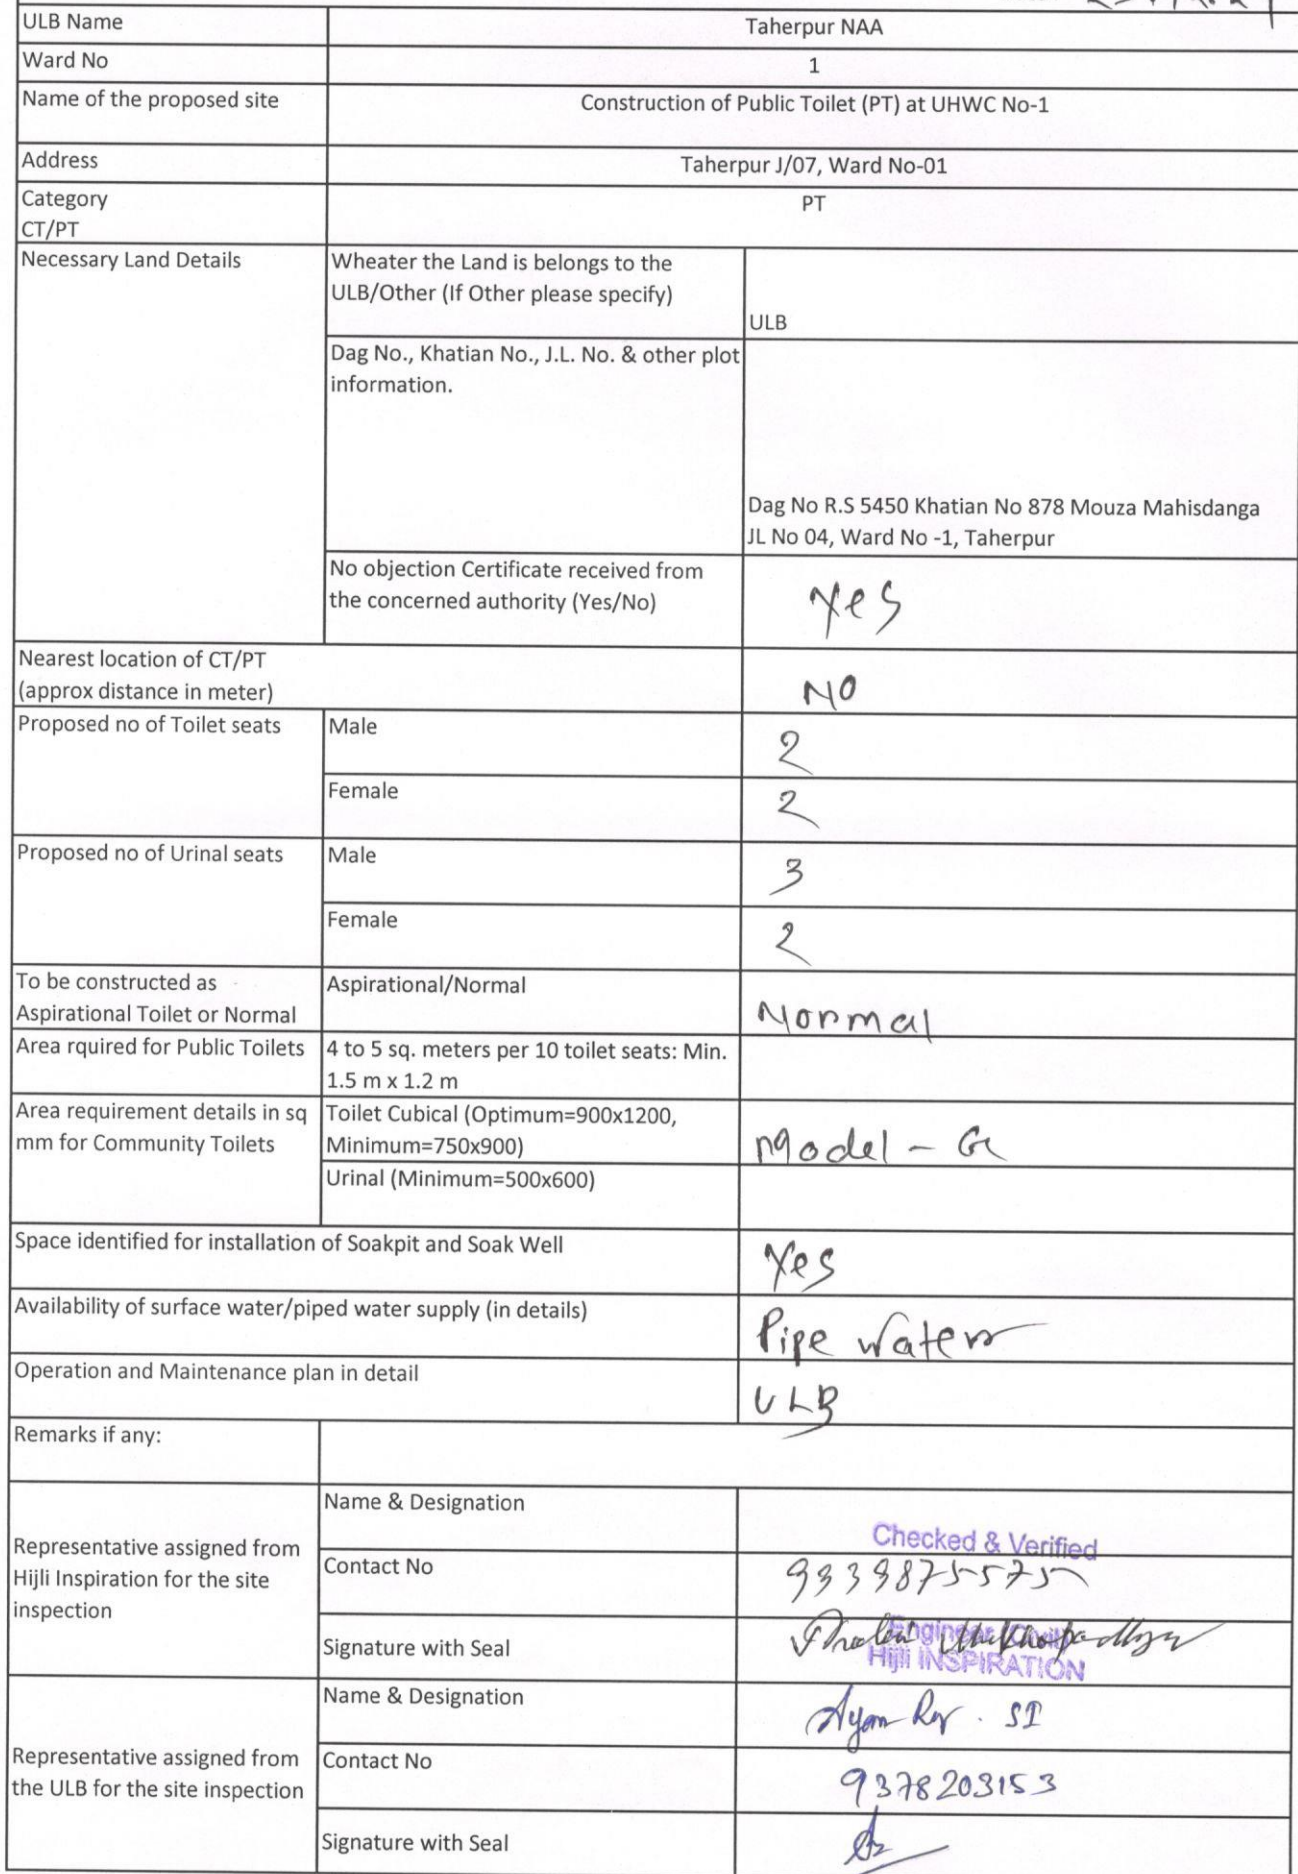 ULB Name
Taherpur NAA
Ward No
1
Name of the proposed site
Construction of Public Toilet (PT) at UHWC No-1
Address
Taherpur J/07, Ward No-01
Category
CT/PT
PT
Necessary Land Details
Wheater the Land is belongs to the
ULB/Other (If Other please specify)
ULB
Dag No., Khatian No., J.L. No. & other plot
information.
Dag No R.S 5450 Khatian No 878 Mouza Mahisdanga
JL No 04, Ward No -1, Taherpur
No objection Certificate received from
the concerned authority (Yes/No)
Yes
Nearest location of CT/PT
(approx distance in meter)
NO
Proposed no of Toilet seats
Male
2
Female
2
Proposed no of Urinal seats
Male
3
Female
2
To be constructed as
Aspirational Toilet or Normal
Aspirational/Normal
Normal
Area rquired for Public Toilets
4 to 5 sq. meters per 10 toilet seats: Min.
1.5 m x 1.2 m
Area requirement details in sq
mm for Community Toilets
Toilet Cubical (Optimum=900x1200,
Minimum=750x900)
Model - G
Urinal (Minimum=500x600)
Space identified for installation of Soakpit and Soak Well
Yes
Availability of surface water/piped water supply (in details)
Pipe Water
Operation and Maintenance plan in detail
ULB
Remarks if any:
Representative assigned from
Hijli Inspiration for the site
inspection
Name & Designation
Checked & Verified
Contact No
9339875575
Signature with Seal
Mukhopadhyay
Engineer (Civil)
Hijli INSPIRATION
Representative assigned from
the ULB for the site inspection
Name & Designation
Ayan Roy . SI
Contact No
9378203153
Signature with Seal